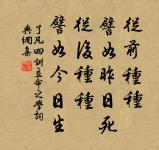 從前種種
譬如昨日死
從後種種
譬如今日生
了凡四訓立命之學詞
典網集